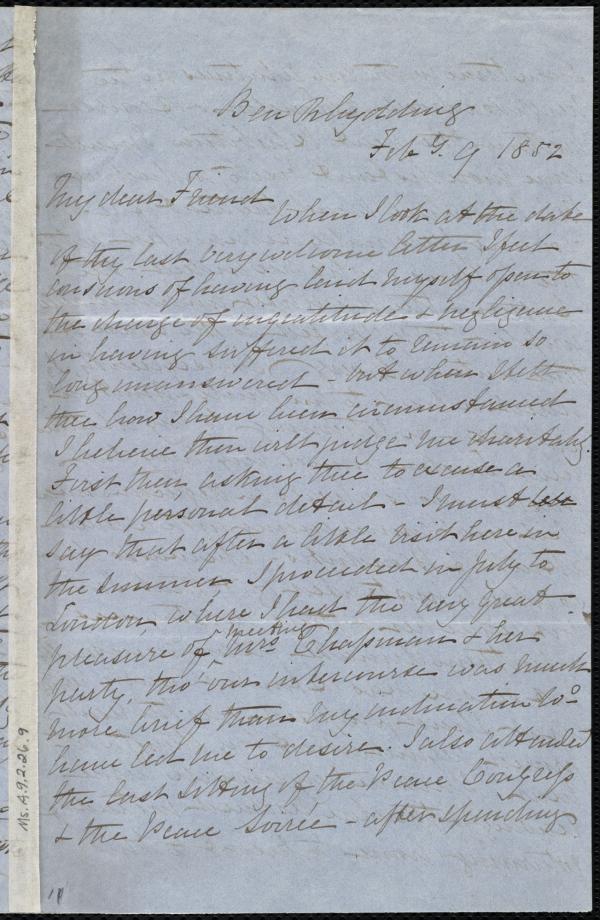 Ben Rhydding
Feb y. 9 1852
My dear Friend
When I look at the date
of thy last very welcome letter I feel
conscious of having laid myself open to
the charge of ingratitude & negligence
in having suffered it to remain so
long unanswered - but when I tell
thee how I have been circumstanced
I believe thou wilt judge me charitably.
First then, asking thee to excuse a
little personal detail - I must
say that after a little visit here in
the summer I proceeded in July to
London, where I had the very great
pleasure of meeting Mrs Chapman & her
party, tho' our intercourse was much
more brief than my inclination wo.
have led me to desire. I also attended
the last sitting of the Peace Congress
& the Peace Soirée - after spending
Ms. A.9.2.26.9